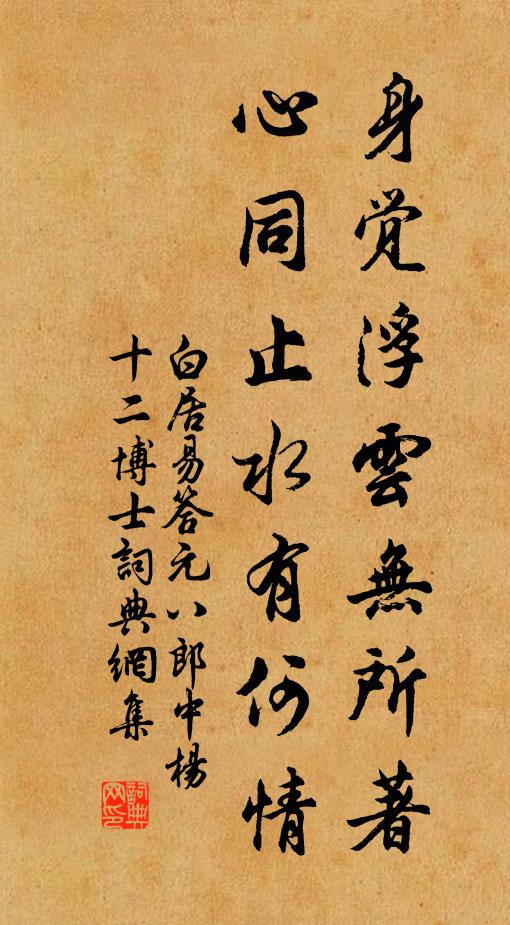 身觉浮雲無所著
心同止水有何情
白居易答元八郎中楊
十二博士詞典網集
詞典网印